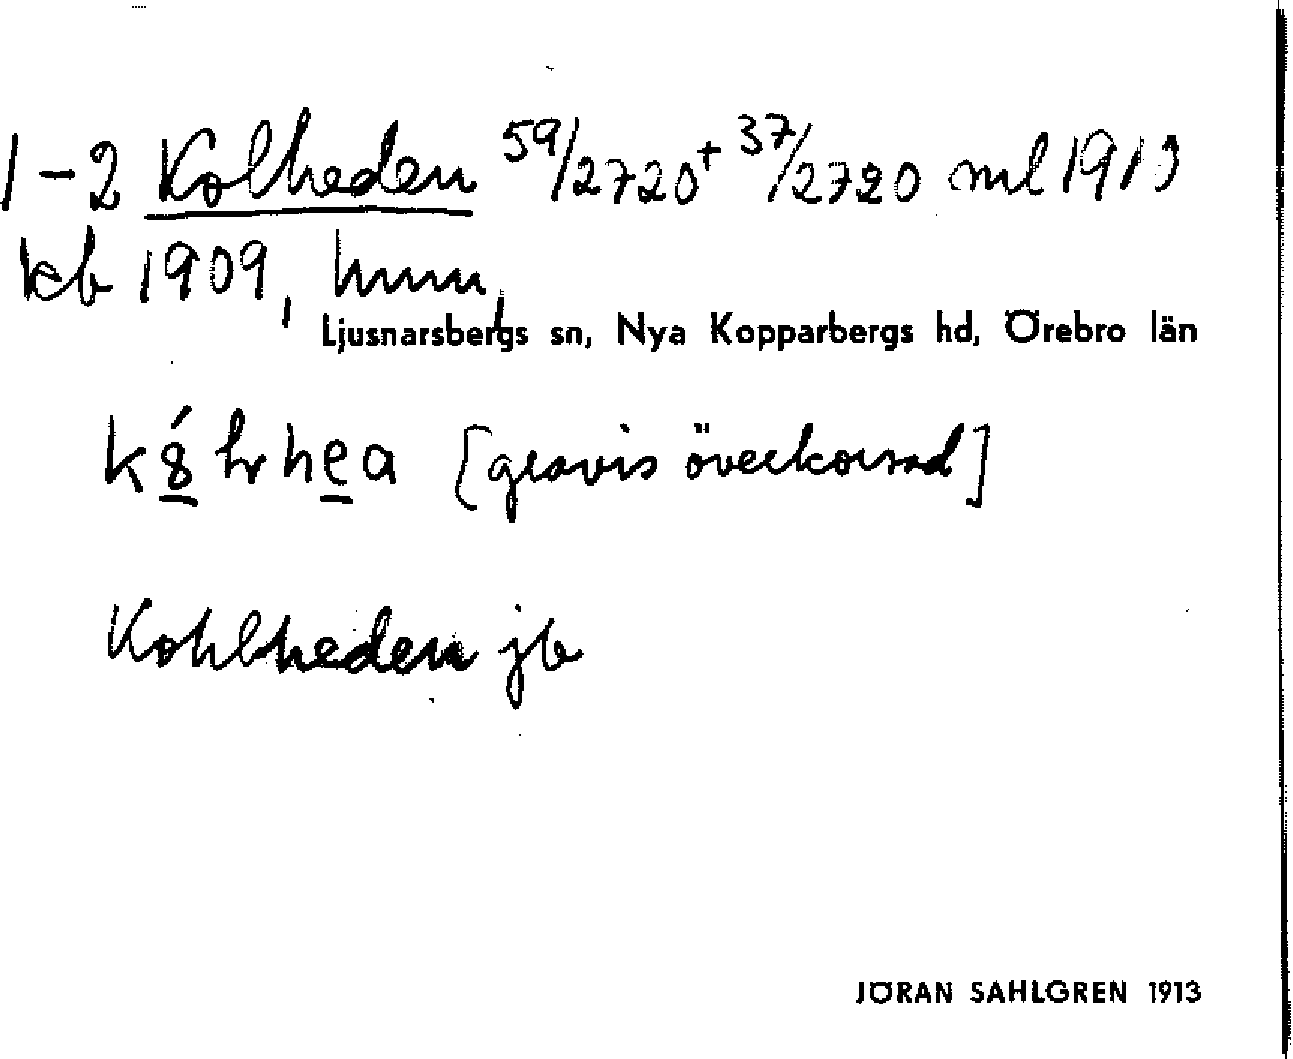 1-2 Kolheden 59/2720 + 37/2720 ml 1913
kb 1909, hmn,
Ljusnarsbergs sn, Nya Kopparbergs hd, Örebro län
[gravis överkorsad]
Kohlheden jb
JÖRAN SAHLGREN 1913